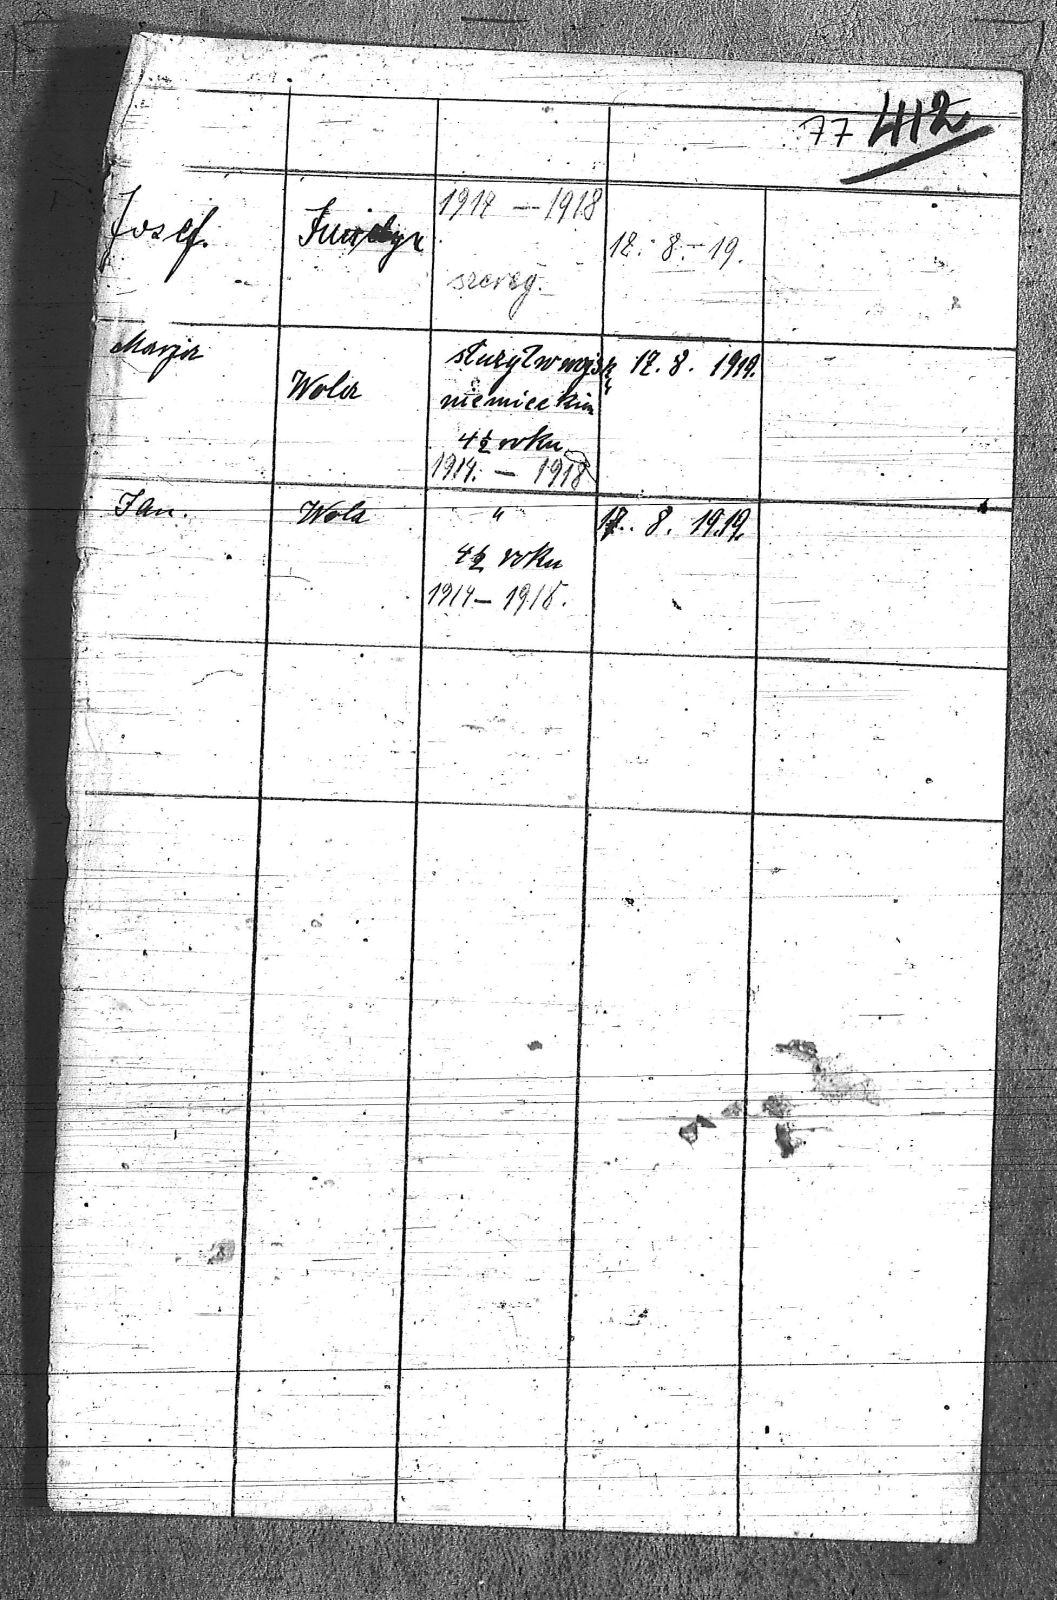 77 412
Josef.
1914 — 1918
12. 8. - 19.
szereg.
Marja
Wola
służył w wojsk
niemieckim
4½ roku
1914. — 1918
17. 8. 1919.
Jan.
Wola
"
4½ roku
1914 — 1918.
17. 8. 1919.